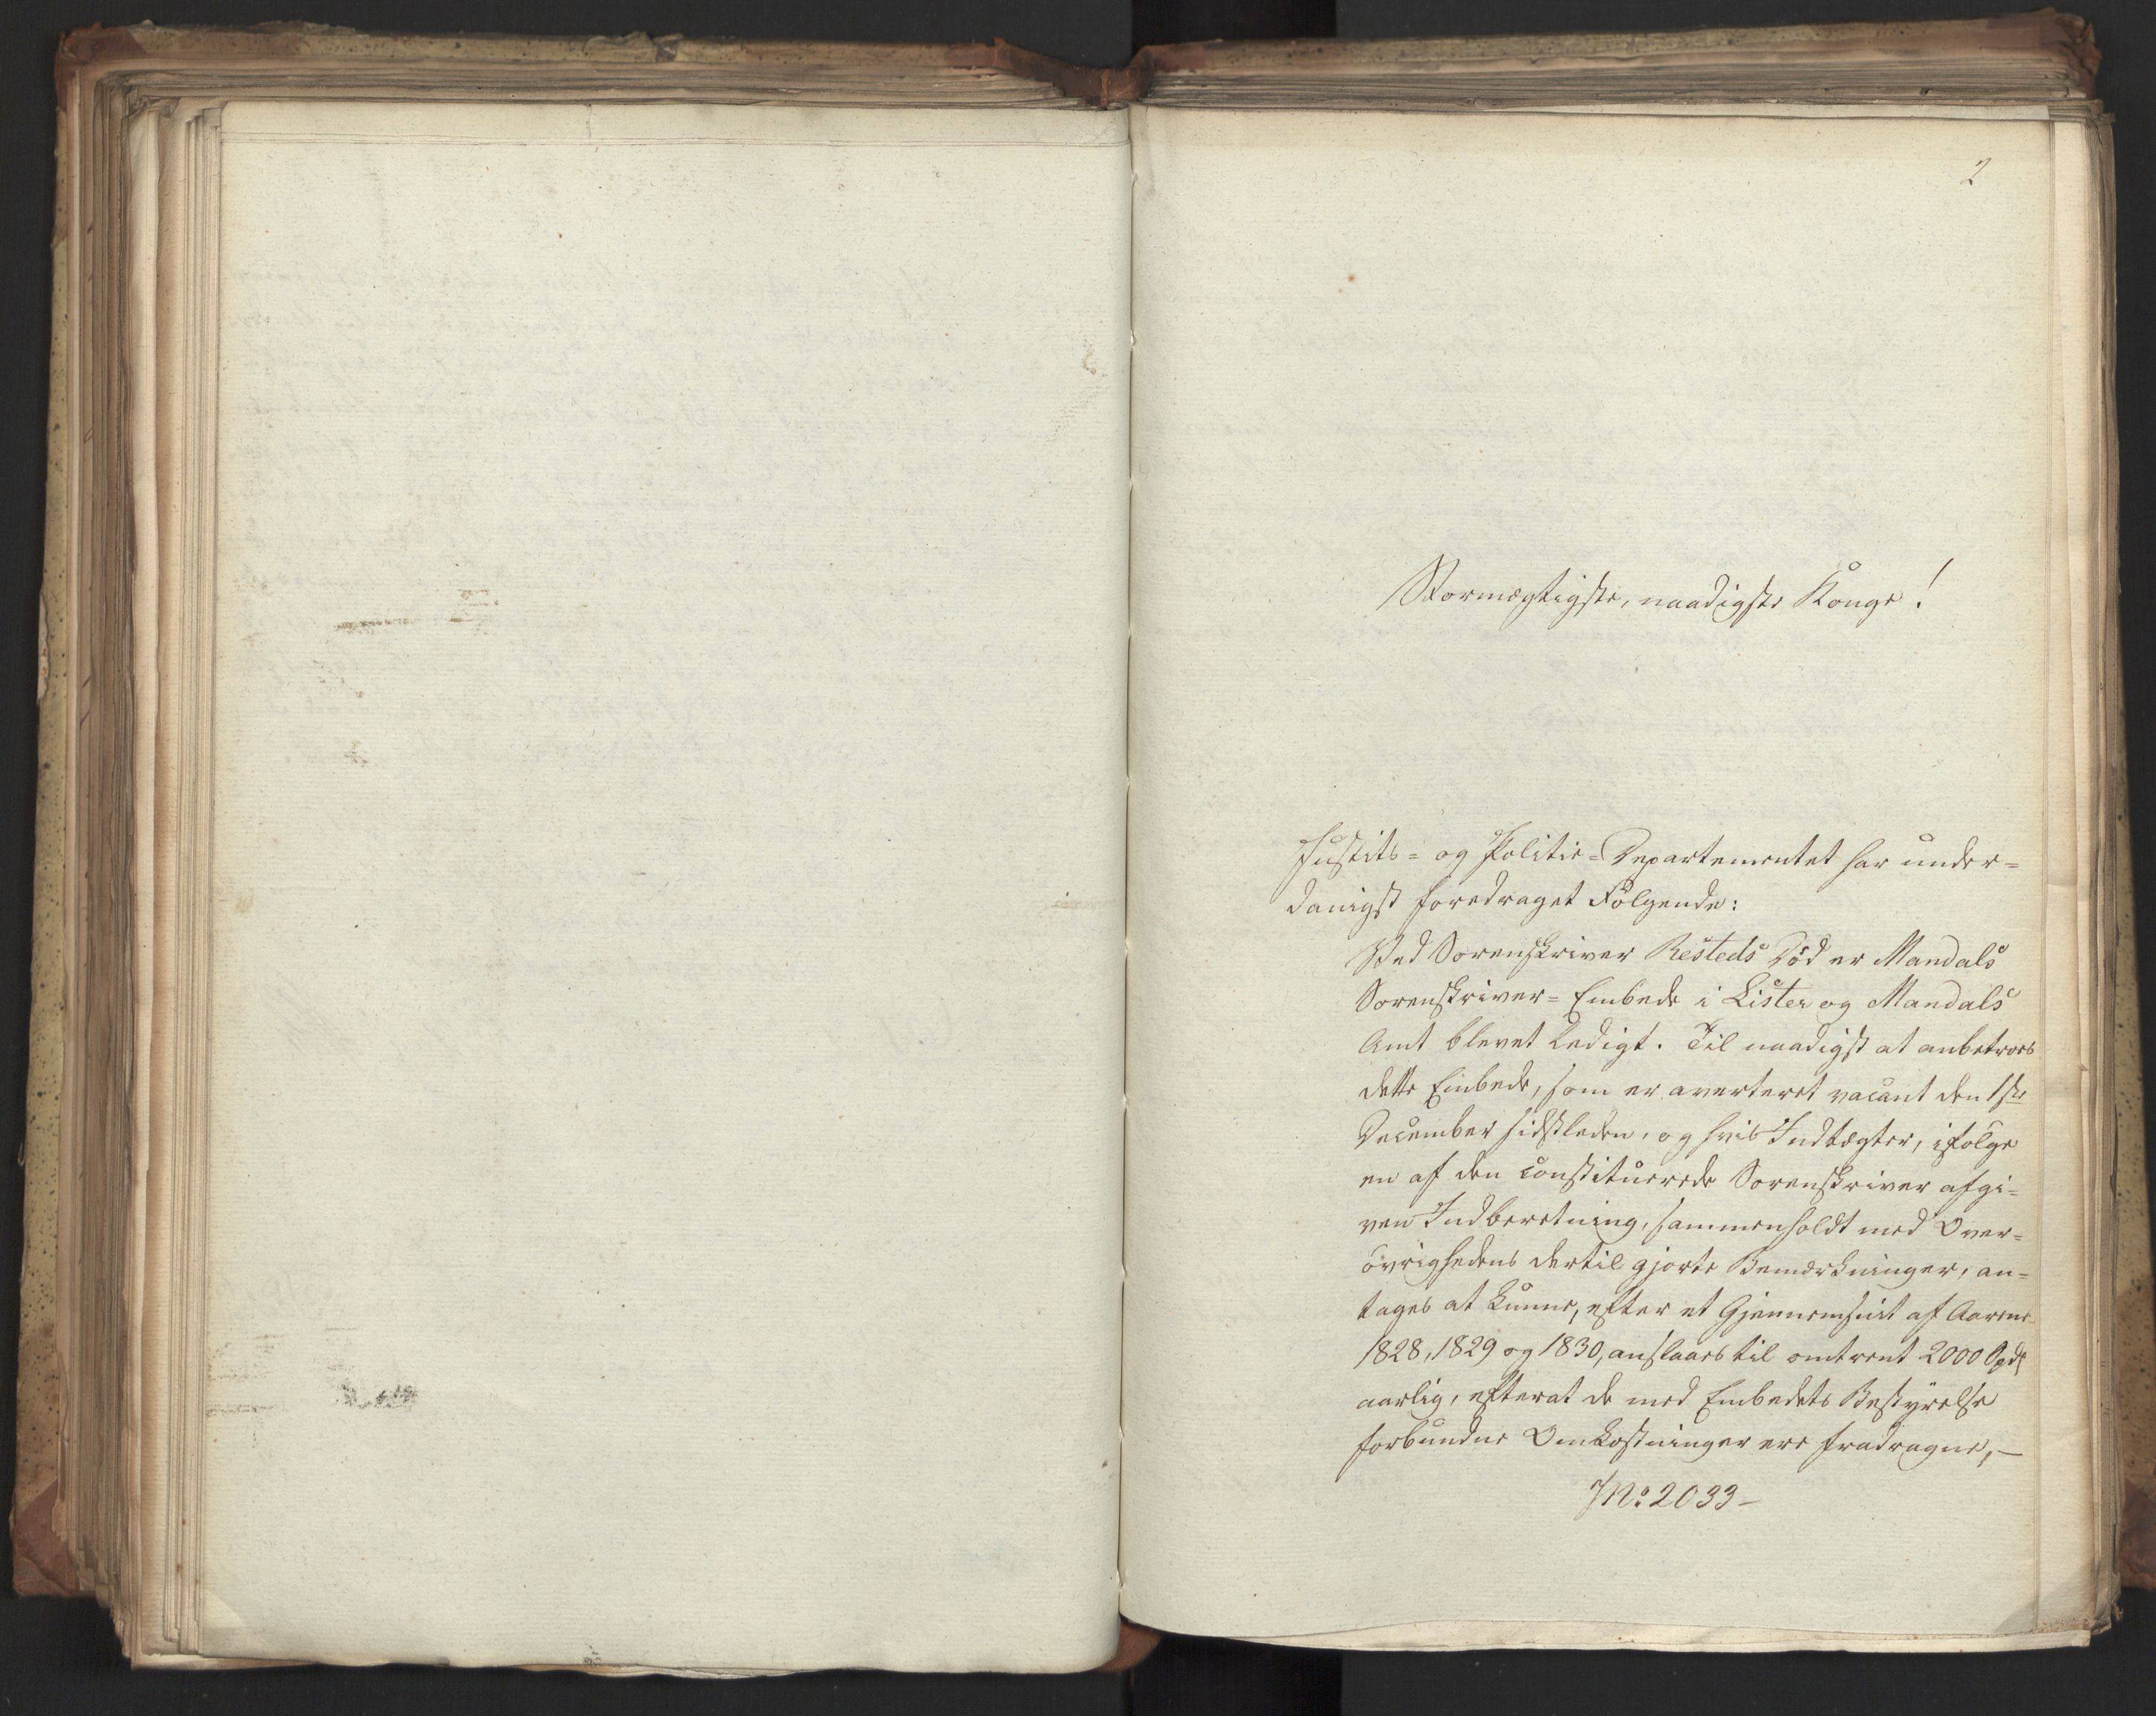 2
Stormægtigste, naadigste Konge!
Justits- og Politie-Departementet har under-
danigst foredraget Følgende:
Ved Sorenskriver Resteds Død er Mandals
Sorenskriver-Embede i Lister og Mandals
Amt blevet ledigt. Til naadigst at anbetroes
dette Embede, som er averteret vacant den 1ste
December sidstleden, og hvis Indtægter, ifølge
en af den constituerede Sorenskriver afgi-
ven Indberetning, sammenholdt med Over-
øvrighedens dertil gjorte Bemærkninger, an-
tages at kunne, efter et Gjennemsnit af Aarene
1828, 1829 og 1830, anslaaes til omtrent 2000 Spd
aarlig, efterat de med Embedets Bestyrelse
forbundne Omkostninger ere fradragne, —
No 2033-